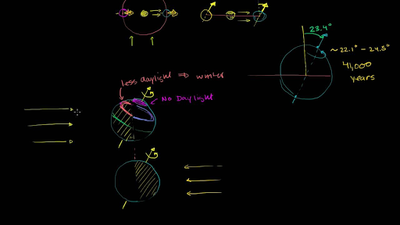 23.4°
~22.1° - 24.5°
41,000
years
less daylight ⇒ winter
No Daylight